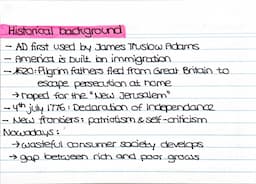 Historical background
- AD first used by James Truslow Adams
- America is built on immigration
- 1620: Pilgrim fathers fled from Great Britain to
escape persecution at home
→ hoped for the "New Jerusalem"
- 4th july 1776: Declaration of Independance
- New frontiers: patriotism & self-criticism
Nowadays:
→ wasteful consumer society develops
→ gap between rich and poor grows